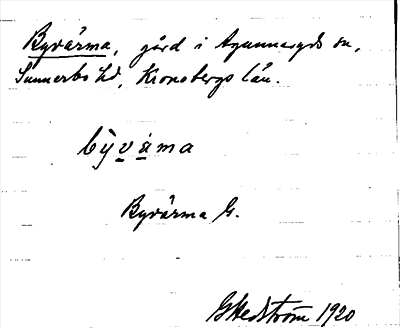 Byvärma, gård i Agunnaryds sn,
Sunnerbo hd, Kronobergs län.
bỳvạ́ma
Byvärma G.
GHedström 1920